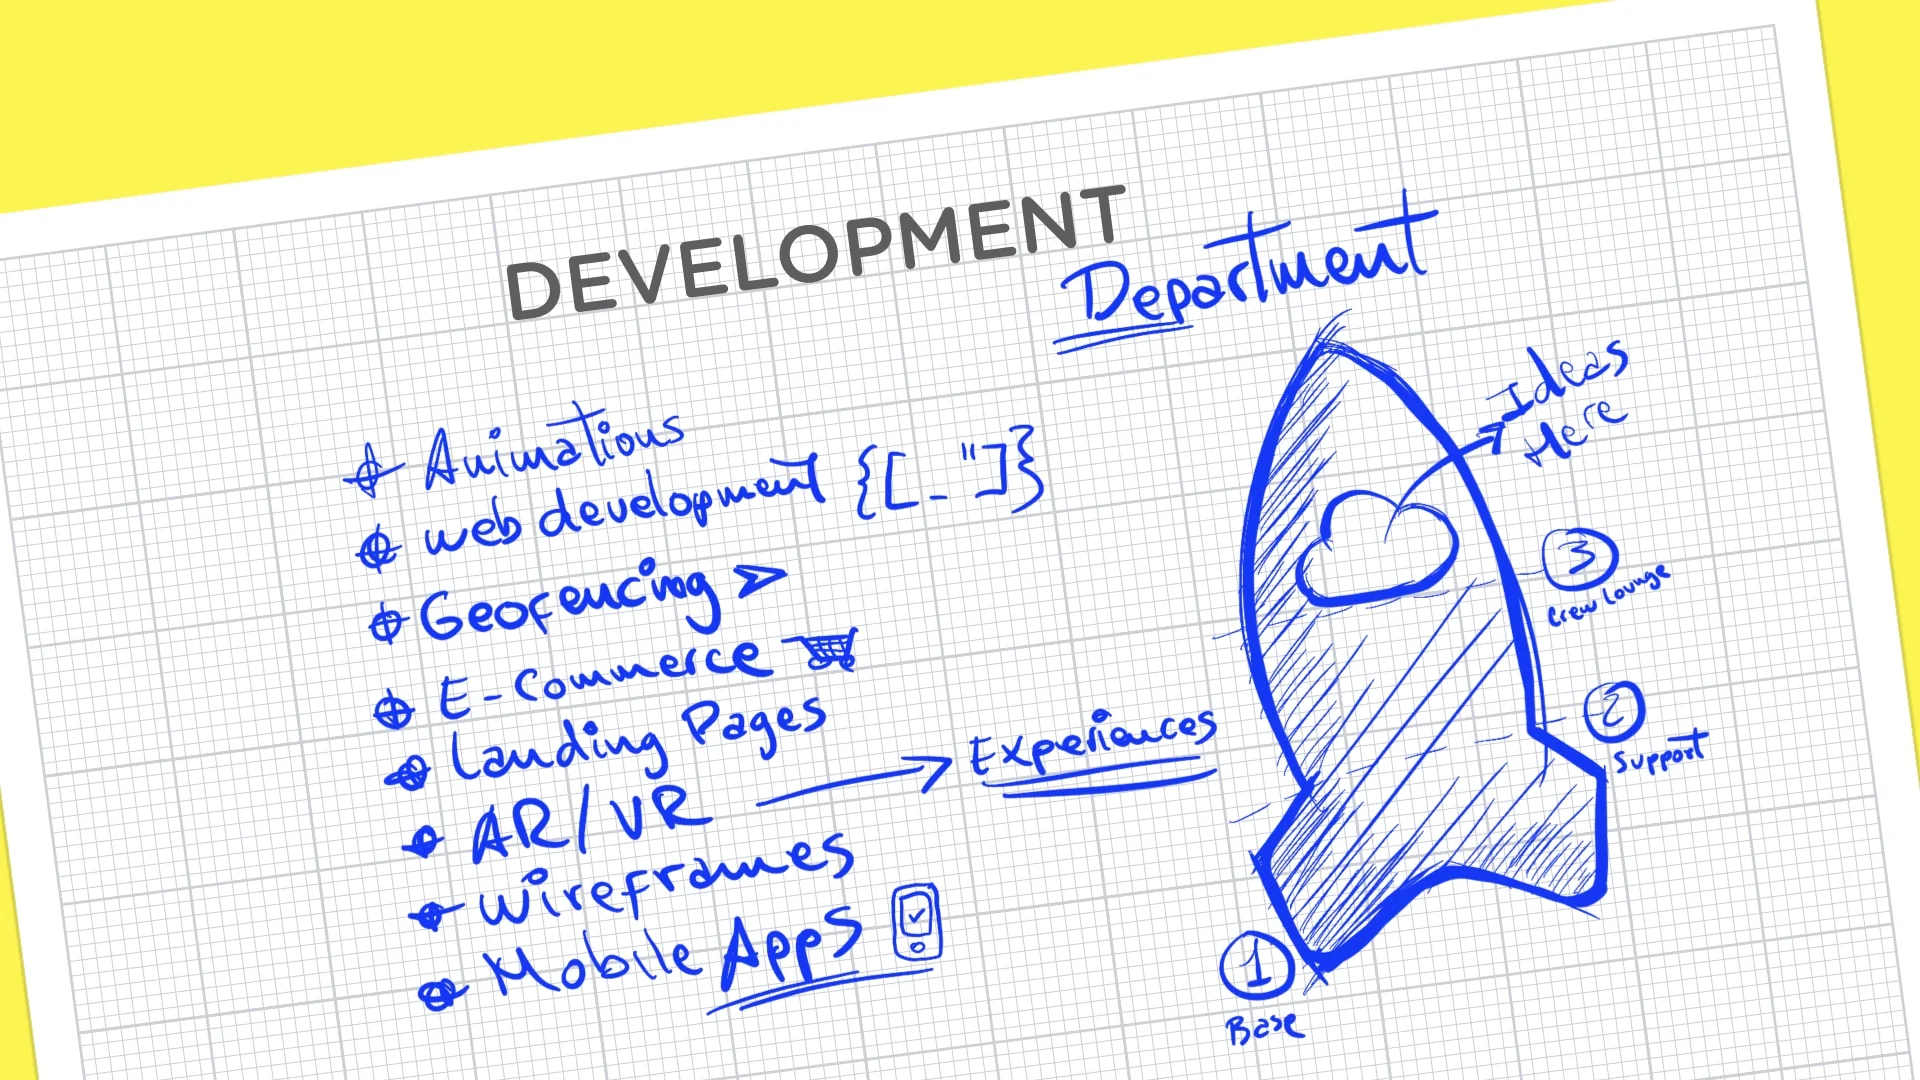 DEVELOPMENT
Department
Animations
web development {[_"]}
Geofencing
E-Commerce
Landing Pages
AR/VR → Experiences
wireframes
Mobile Apps
Ideas
Here
3
Crew Lounge
2
Support
1
Base